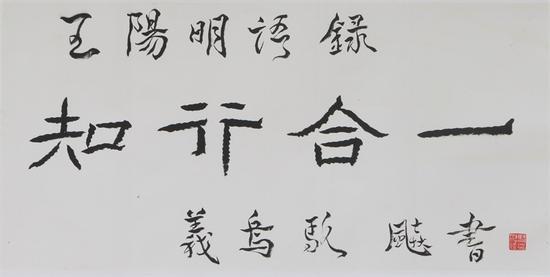 王陽明語錄
知行合一
義烏 飈書